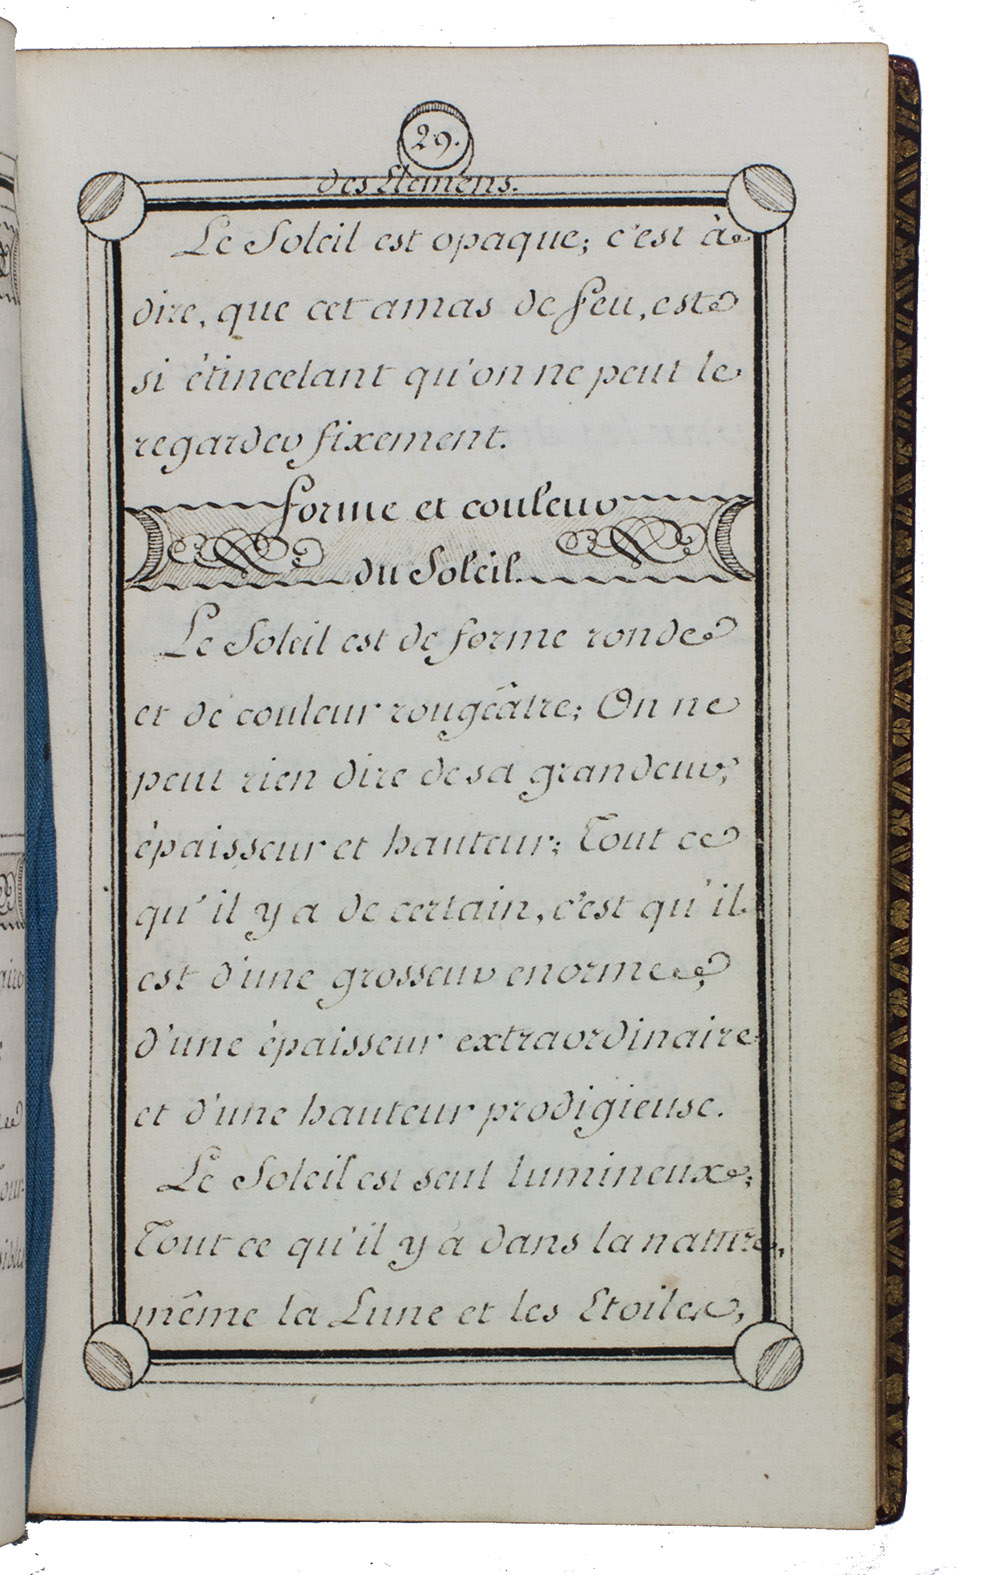 29.
des Elemens.
Le Soleil est opaque; c'est à
dire, que cet amas de feu, est
si étincelant qu'on ne peut le
regarder fixement.
forme et couleur
du Soleil.
Le Soleil est de forme ronde
et de couleur rougeâtre; On ne
peut rien dire de sa grandeur,
épaisseur et hauteur; Tout ce
qu'il y a de certain, c'est qu'il
est d'une grosseur enorme,
d'une épaisseur extraordinaire
et d'une hauteur prodigieuse.
Le Soleil est seul lumineux;
Tout ce qu'il y a dans la nature,
même la Lune et les Etoiles,